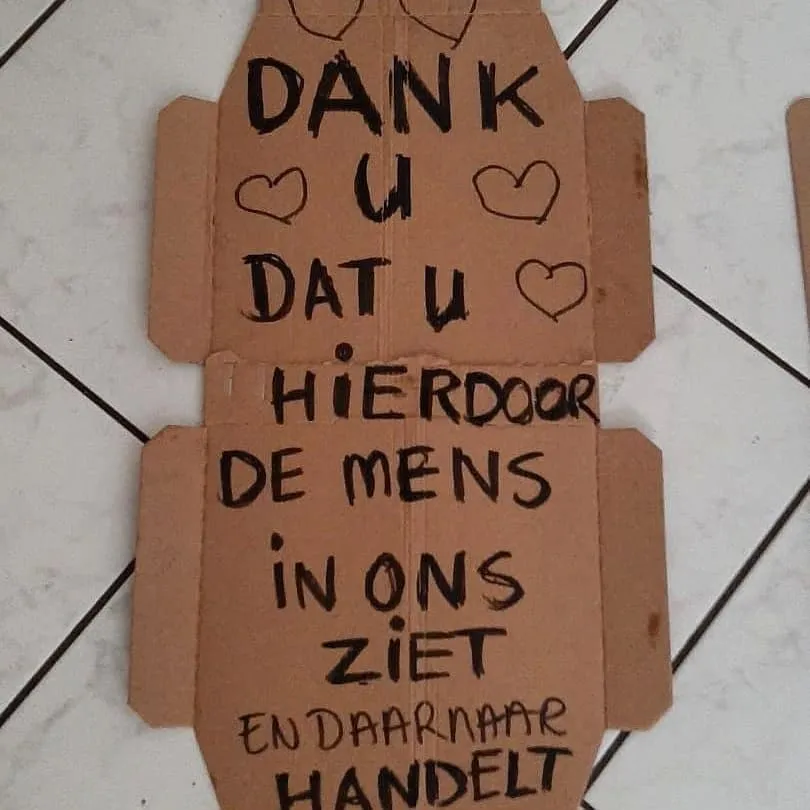 DANK
U
DAT U
HiERDOOR
DE MENS
iN ONS
ZiET
EN DAARNAAR
HANDELT